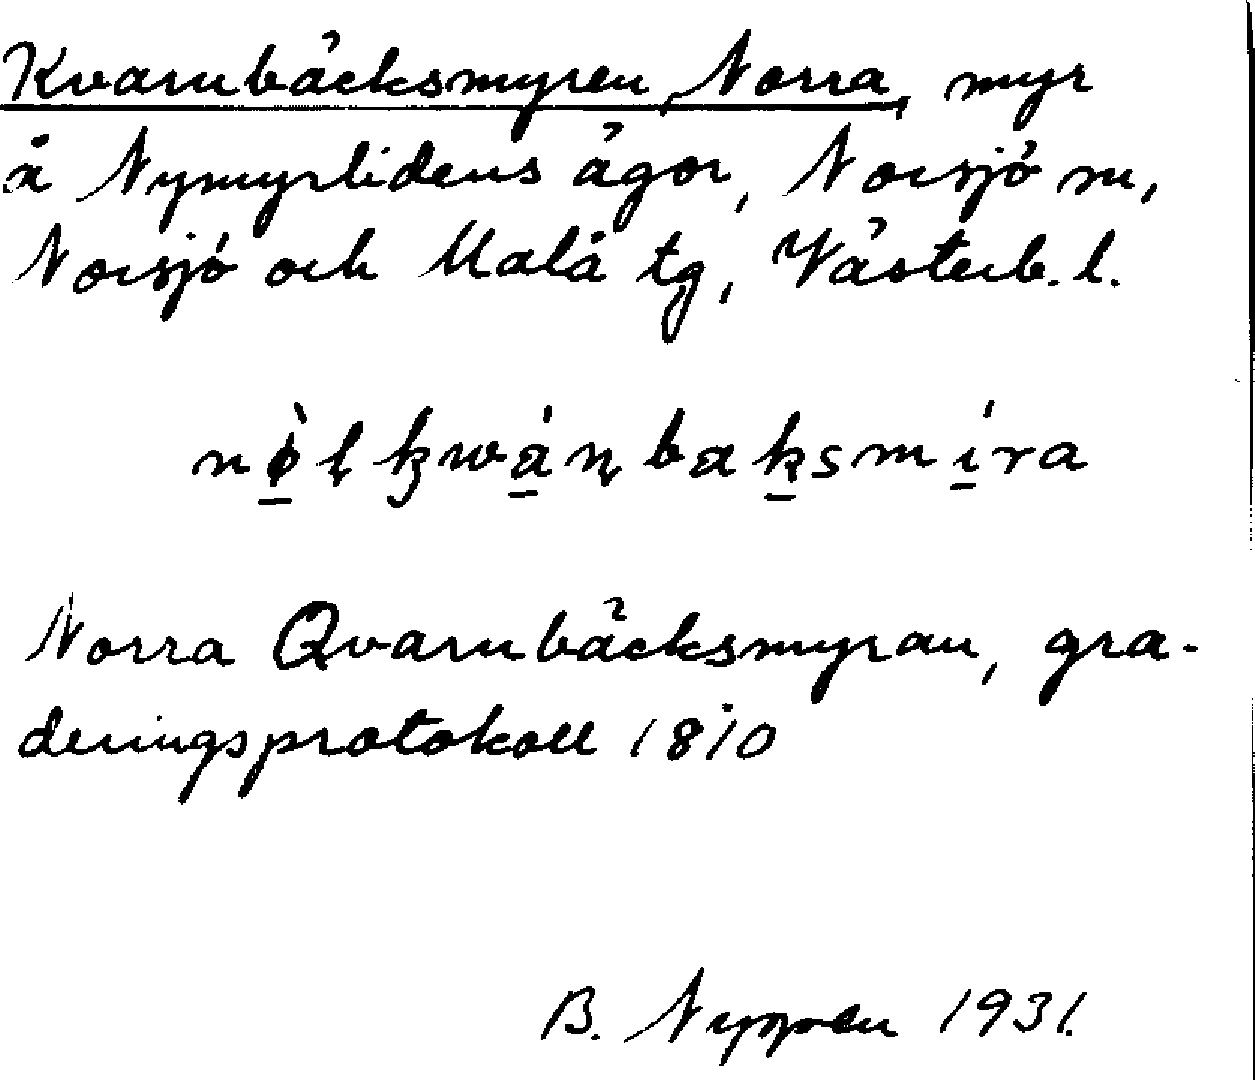 Kvarnbäcksmyren, Norra, myr
å Nymyrlidens ägor, Norsjö sn,
Norsjö och Malå tg, Västerb. l.
Norra Qvarnbäcksmyran, gra-
deringsprotokoll 1810
B. Nygren 1931.